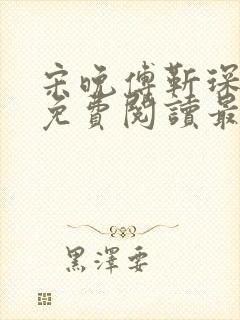 宋晚傅靳琛
免費閱讀最
黑澤要